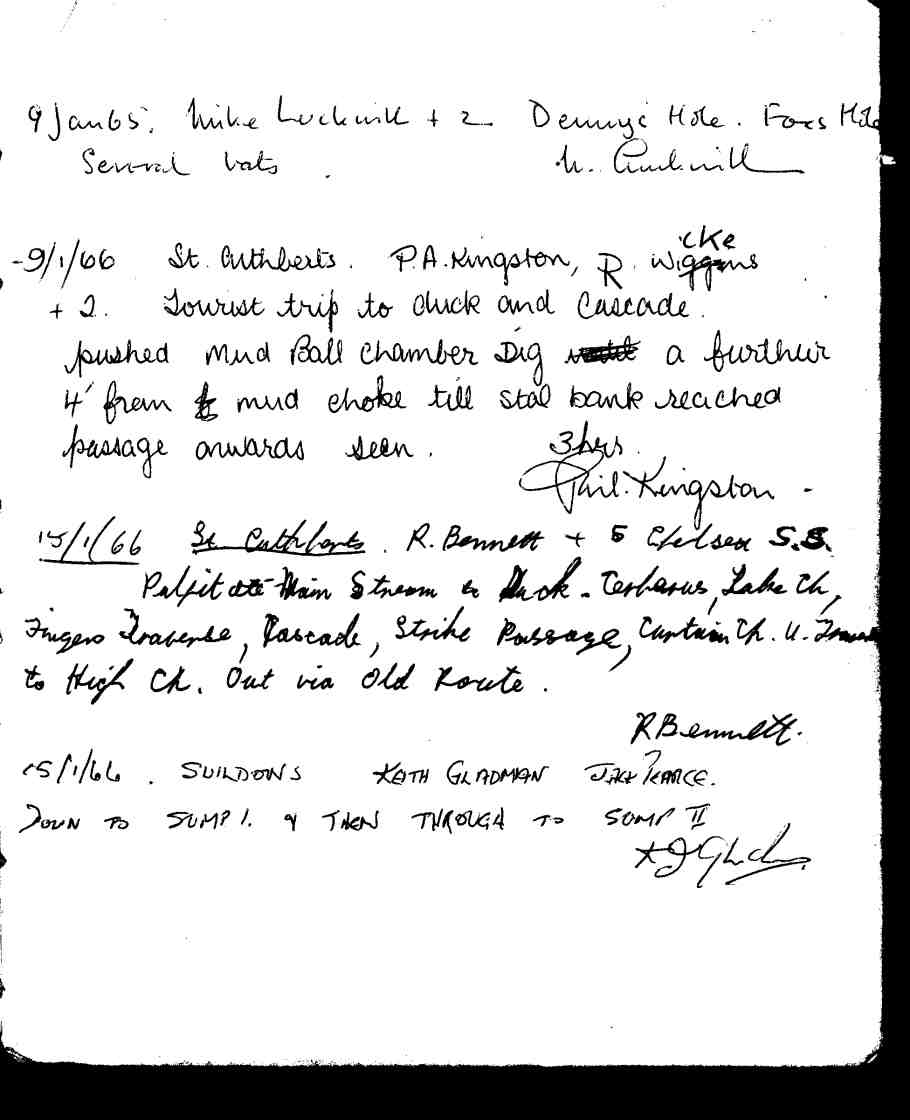 9 Jan 65. Mike Luckwill + 2 Denny's Hole. Foxs Hole
Several bats .
M. Luckwill
-9/1/66 St. Cuthberts. P.A. Kingston, R. Wickens
+ 2. Tourist trip to duck and Cascade.
pushed Mud Ball Chamber Dig a further
4' from mud choke till stal bank reached
passage onwards seen. 3 hrs.
Phil. Kingston -
15/1/66 St Cuthberts. R. Bennett + 5 Chelsea S.S.
Pulpit Main Stream to Duck - Cerberus, Lake Ch,
Fingers Traverse, Cascade, Strike Passage, Curtain Ch. U.
to High Ch. Out via Old Route.
R Bennett.
15/1/66. SWILDONS KEITH GLADMAN JACK PEARCE.
DOWN TO SUMP 1. & THEN THROUGH TO SUMP II